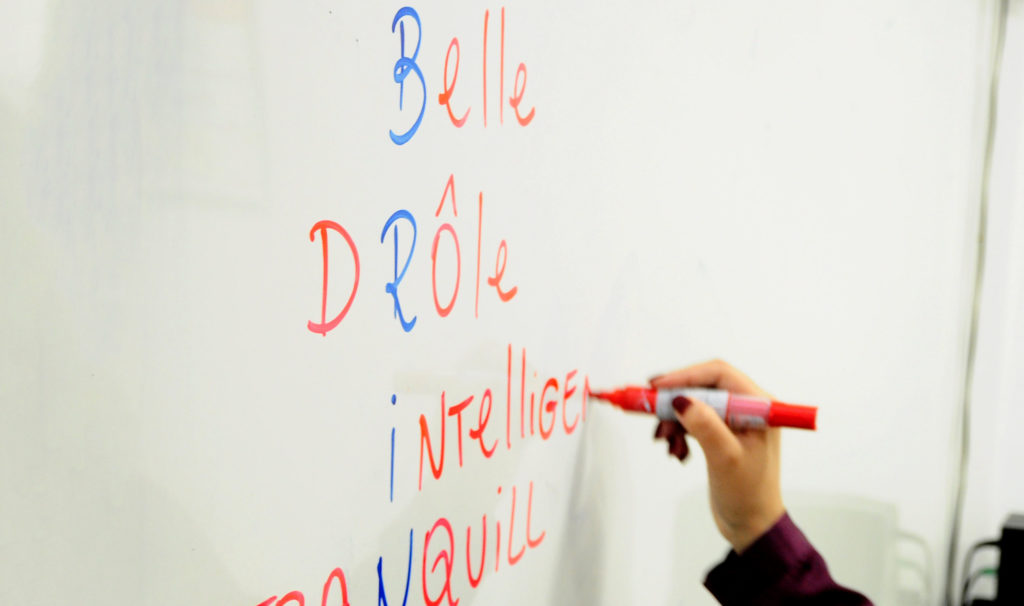 Belle
DRÔle
iNTelliGEN
TRANQUiLL